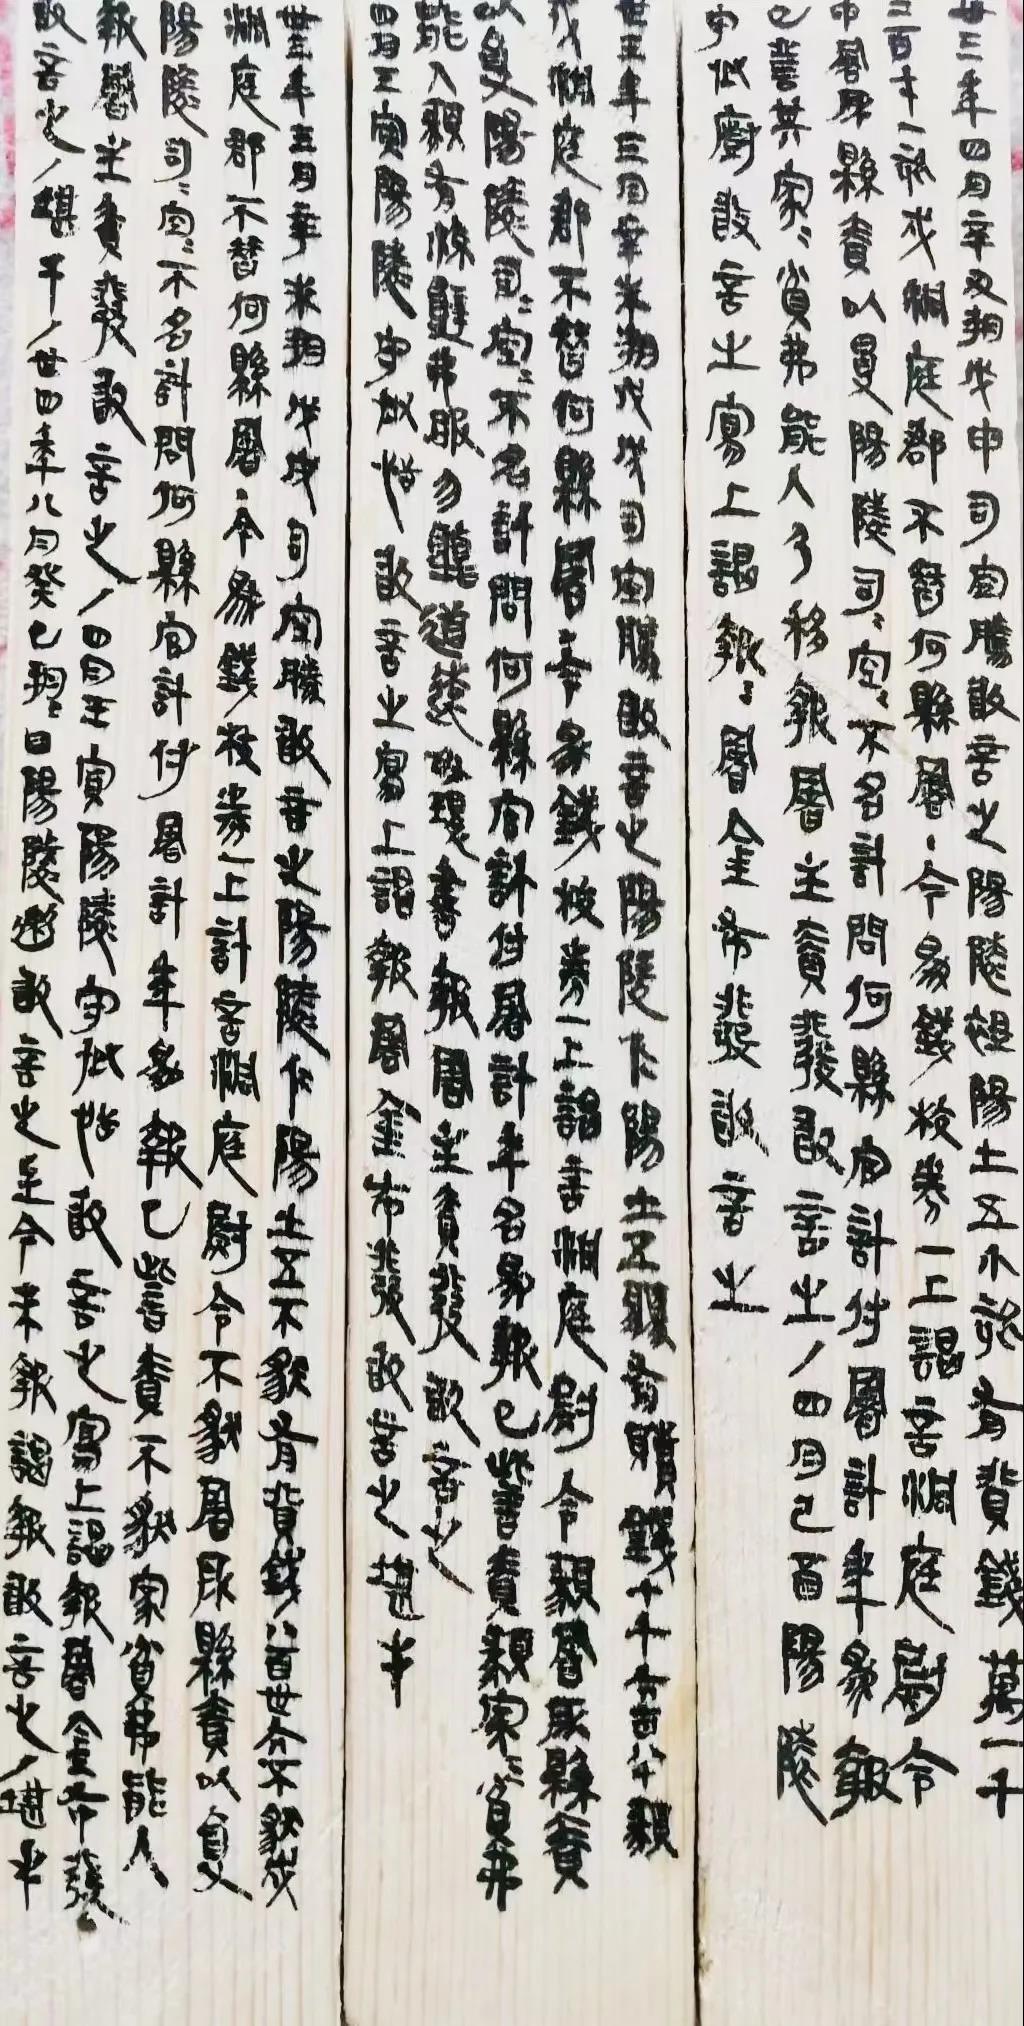 卅三年四月辛丑朔戊申司空騰敢言之陽陵褆陽士五小欬有貲錢萬一千
二百七十一欬戍洞庭郡不智何縣署·今為錢校券一上謁言洞庭尉令
申署所縣責以受陽陵司=空=不名計問何縣官計付署計年為報
已訾其家=貧弗能入乃移報署主責發敢言之/四月己酉陽陵
守丞廚敢言之寫上謁報=署金布發敢言之
卅三年三月辛未朔戊戌司空騰敢言之陽陵仁陽士五有贖錢七千六百八十
戍洞庭郡不智何縣署·今為錢校券一上謁言洞庭尉令署所縣責
以受陽陵司=空=不名計問何縣官計付署計年名為報已訾責家=貧弗
能入有流辭弗服勿聽道遠毋環書報署主責發敢言之
四月壬寅陽陵守丞恬敢言之寫上謁報署金布發敢言之堪手
卅三年三月辛未朔戊戌司空騰敢言之陽陵仁陽士五不豺有貲錢八百卅六不豺戍
洞庭郡不智何縣署·今為錢校券一上計言洞庭尉令不豺署所縣責以受
陽陵司=空=不名計問何縣官計付署計年為報已訾責不豺家貧弗能入
報署主責發敢言之/四月壬寅陽陵守丞恬敢言之寫上謁報署金布發=
敢言之/堪手/卅四年八月癸巳朔=日陽陵遬敢言之至今未報謁報敢言之/堪手